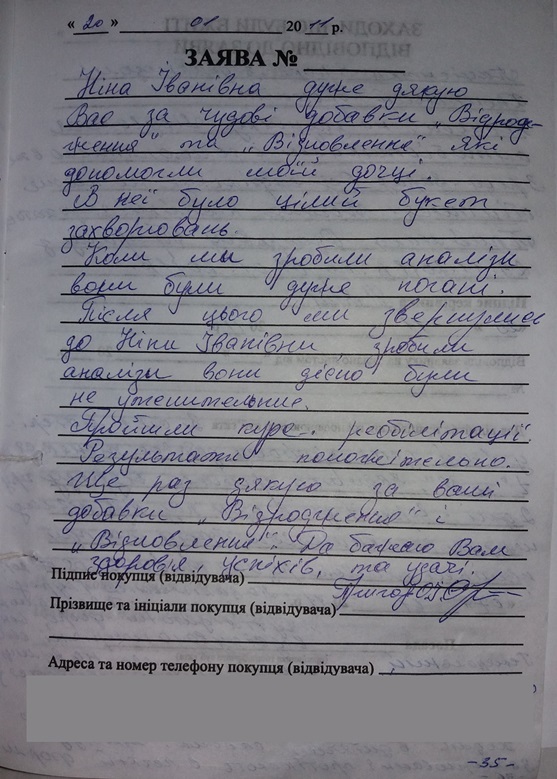 « 20 » 01 2011 р.
ЗАЯВА №
Ніна Іванівна дуже дякую
Вас за чудові добавки „Відрод-
ження" та „Відновлення" які
допомогли моїй дочці.
В неї було цілий букет
захворювань.
Коли ми зробили аналізи
вони були дуже погані.
Після цього ми звернулися
до Ніни Іванівни зробили
аналізи вони дісно були
не утешительние.
Пройшли курс реобілітації.
Результати положітельно.
Ще раз дякую за ваші
добавки „Відродження" і
„Відновлення". Да бажаю Вам
здоров'я, успіхів, та удачі.
Підпис покупця (відвідувача)
Прізвище та ініціали покупця (відвідувача)
Адреса та номер телефону покупця (відвідувача)
-35-